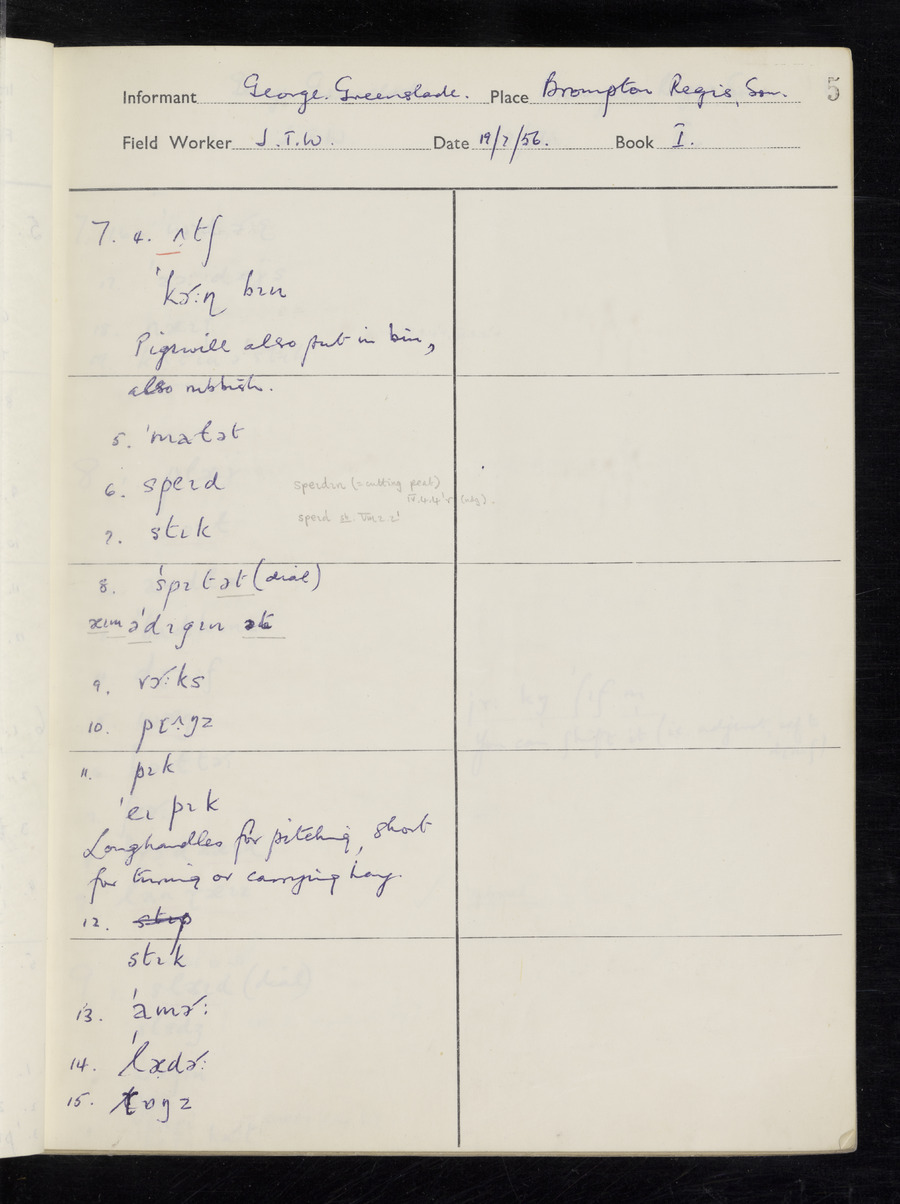 Informant George Greenslade. Place Brompton Regis, Som. 5
Field Worker J.T.W. Date 19/7/56. Book I.
7. 4. ʌtʃ
ˈkɚ:n̩ bɪn
Pigswill also put in bin,
also rubbish.
5. ˈmatət
6. speɪd
speɪdɪn (= cutting peat)
IV.4.4
7. stɪk
speɪd
8. ˈspɪtət (dial)
əˈdɪgɪn ət
9. vɚ:ks
10. prʌŋz
11. pɪk
ˈeɪ pɪk
Longhandles for pitching, short
for turning or carrying hay.
12. step
stɪk
13. ˈamɚ:
14. ˈlædɚ:
15. tɒŋz